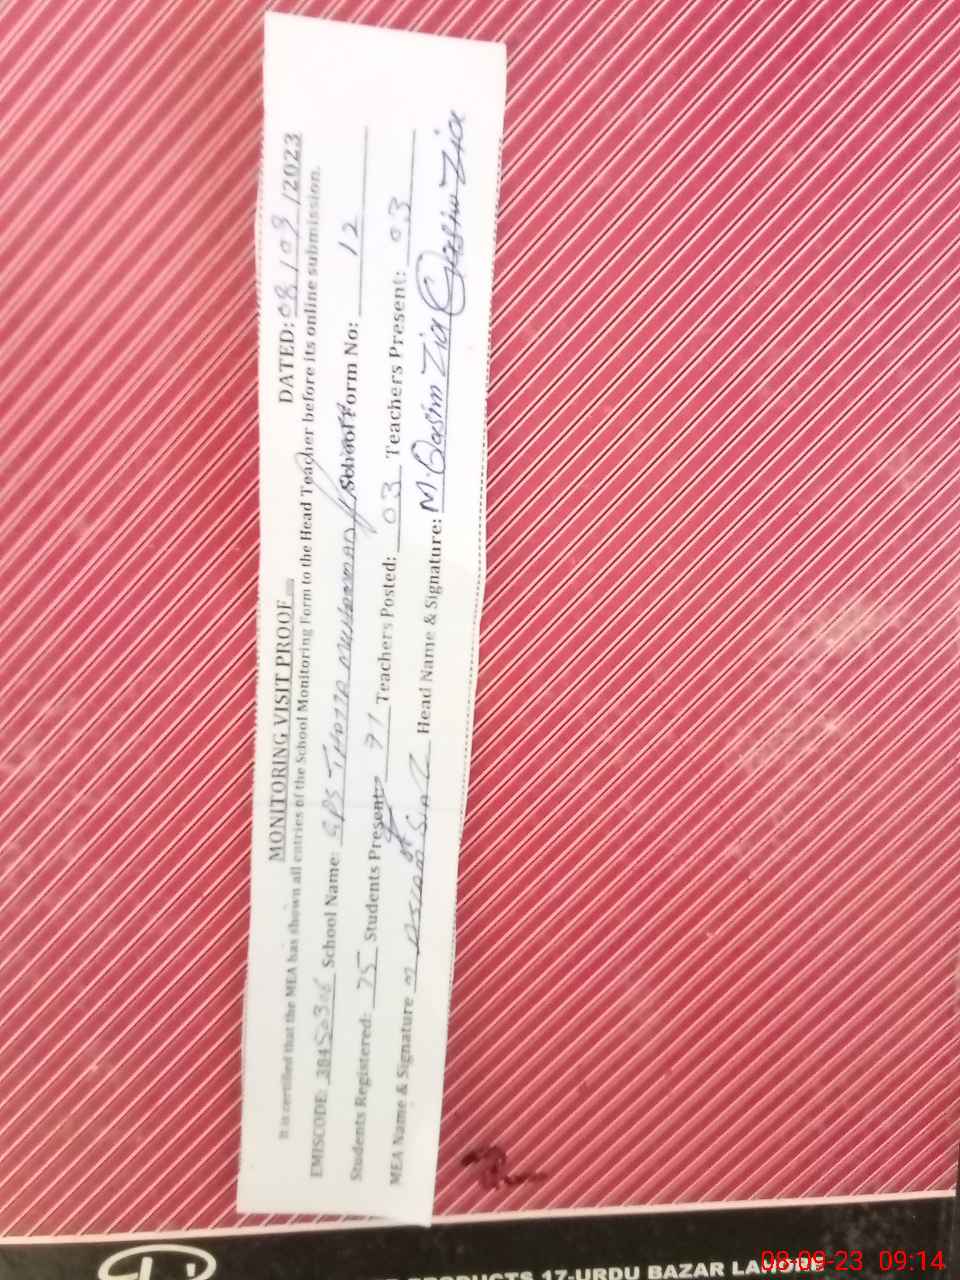 MONITORING VISIT PROOF DATED: 08/09/2023
It is certified that the MEA has shown all entries of the School Monitoring Form to the Head Teacher before its online submission.
EMISCODE: 38450306 School Name: GPS THATTA School Form No: 12
Students Registered: 75 Students Present: 71 Teachers Posted: 03 Teachers Present: 03
MEA Name & Signature Head Name & Signature: M. Qasim Zia Qasim Zia
PRODUCTS 17-URDU BAZAR LAHORE
08-09-23 09:14